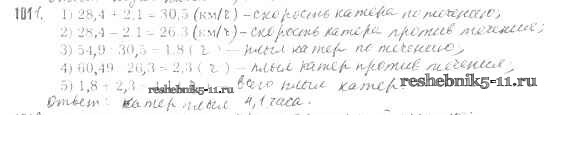 1011.
1) 28,4 + 2,1 = 30,5 (км/ч) – скорость катера по течению;
2) 28,4 – 2,1 = 26,3 (км/ч) – скорость катера против течения;
3) 54,9 : 30,5 = 1,8 (ч) – плыл катер по течению,
4) 60,49 : 26,3 = 2,3 (ч) – плыл катер против течения,
5) 1,8 + 2,3 всего плыл катер
reshebnik5-11.ru
reshebnik5-11.ru
Ответ: катер плыл 4,1 часа.